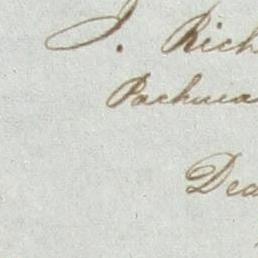 J. Rich
Pachuca
Dea